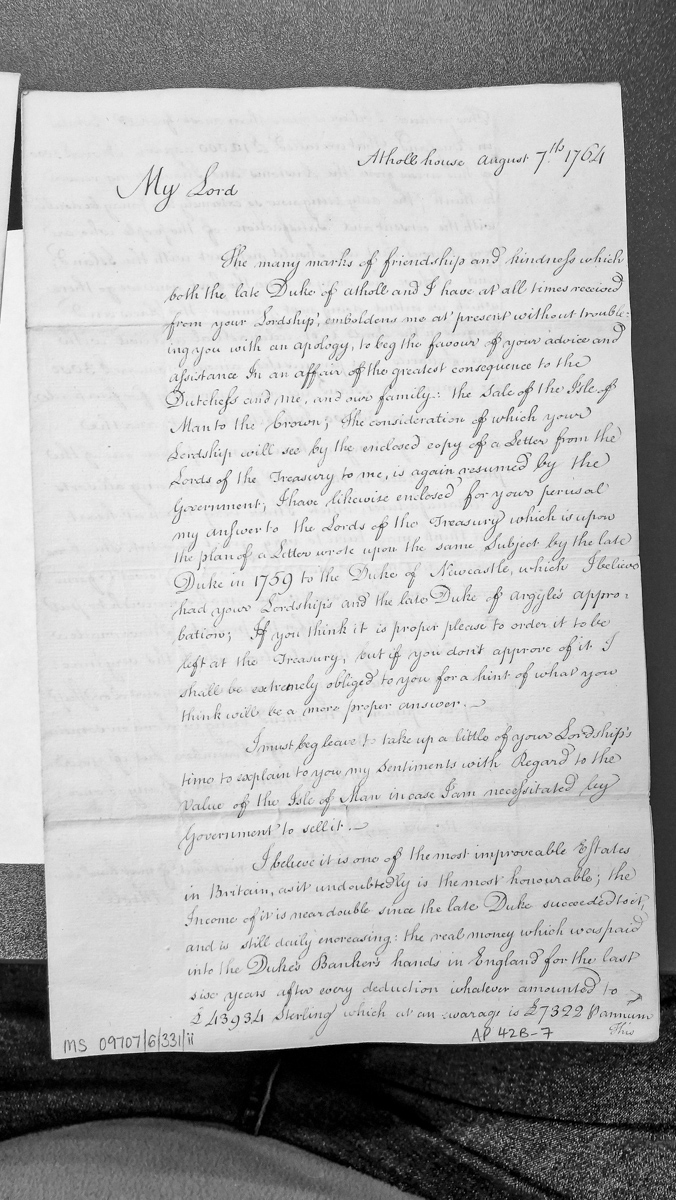 Atholl house August 7.th 1764
My Lord
The many marks of friendship and kindness which
both the late Duke of Atholl and I have at all times received
from your Lordship, emboldens me at present without troubl:
ing you with an apology, to beg the favour of your advice and
assistance In an affair of the greatest consequence to the
Dutchess and me, and our family: the Sale of the Isle of
Man to the Crown; The consideration of which your
Lordship will see by the enclosed copy of a Letter from the
Lords of the Treasury to me, is again resumed by the
Government, I have likewise enclosed for your perusal
my answer to the Lords of the Treasury which is upon
the plan of a Letter wrote upon the same Subject by the late
Duke in 1759 to the Duke of Newcastle, which I believe
had your Lordships and the late Duke of Argyle's appro:
bation; If you think it is proper please to order it to be
left at the Treasury, but if you don't approve of it I
shall be extremely obliged to you for a hint of what you
think will be a more proper answer. —
I must beg leave to take up a little of your Lordship's
time to explain to you my Sentiments with Regard to the
Value of the Isle of Man in case I am necessitated by
Government to sell it. —
I believe it is one of the most improveable Estates
in Britain, as it undoubtedly is the most honourable; the
Income of it is near double since the late Duke succeeded to it,
and is still daily encreasing: the real money which was paid
into the Duke's Bankers hands in England for the last
six years after every deduction whatever amounted to
£43934 Sterling which at an avarage is £7322 P annum
This
MS 09707/6/331/ii
AP 42B-7